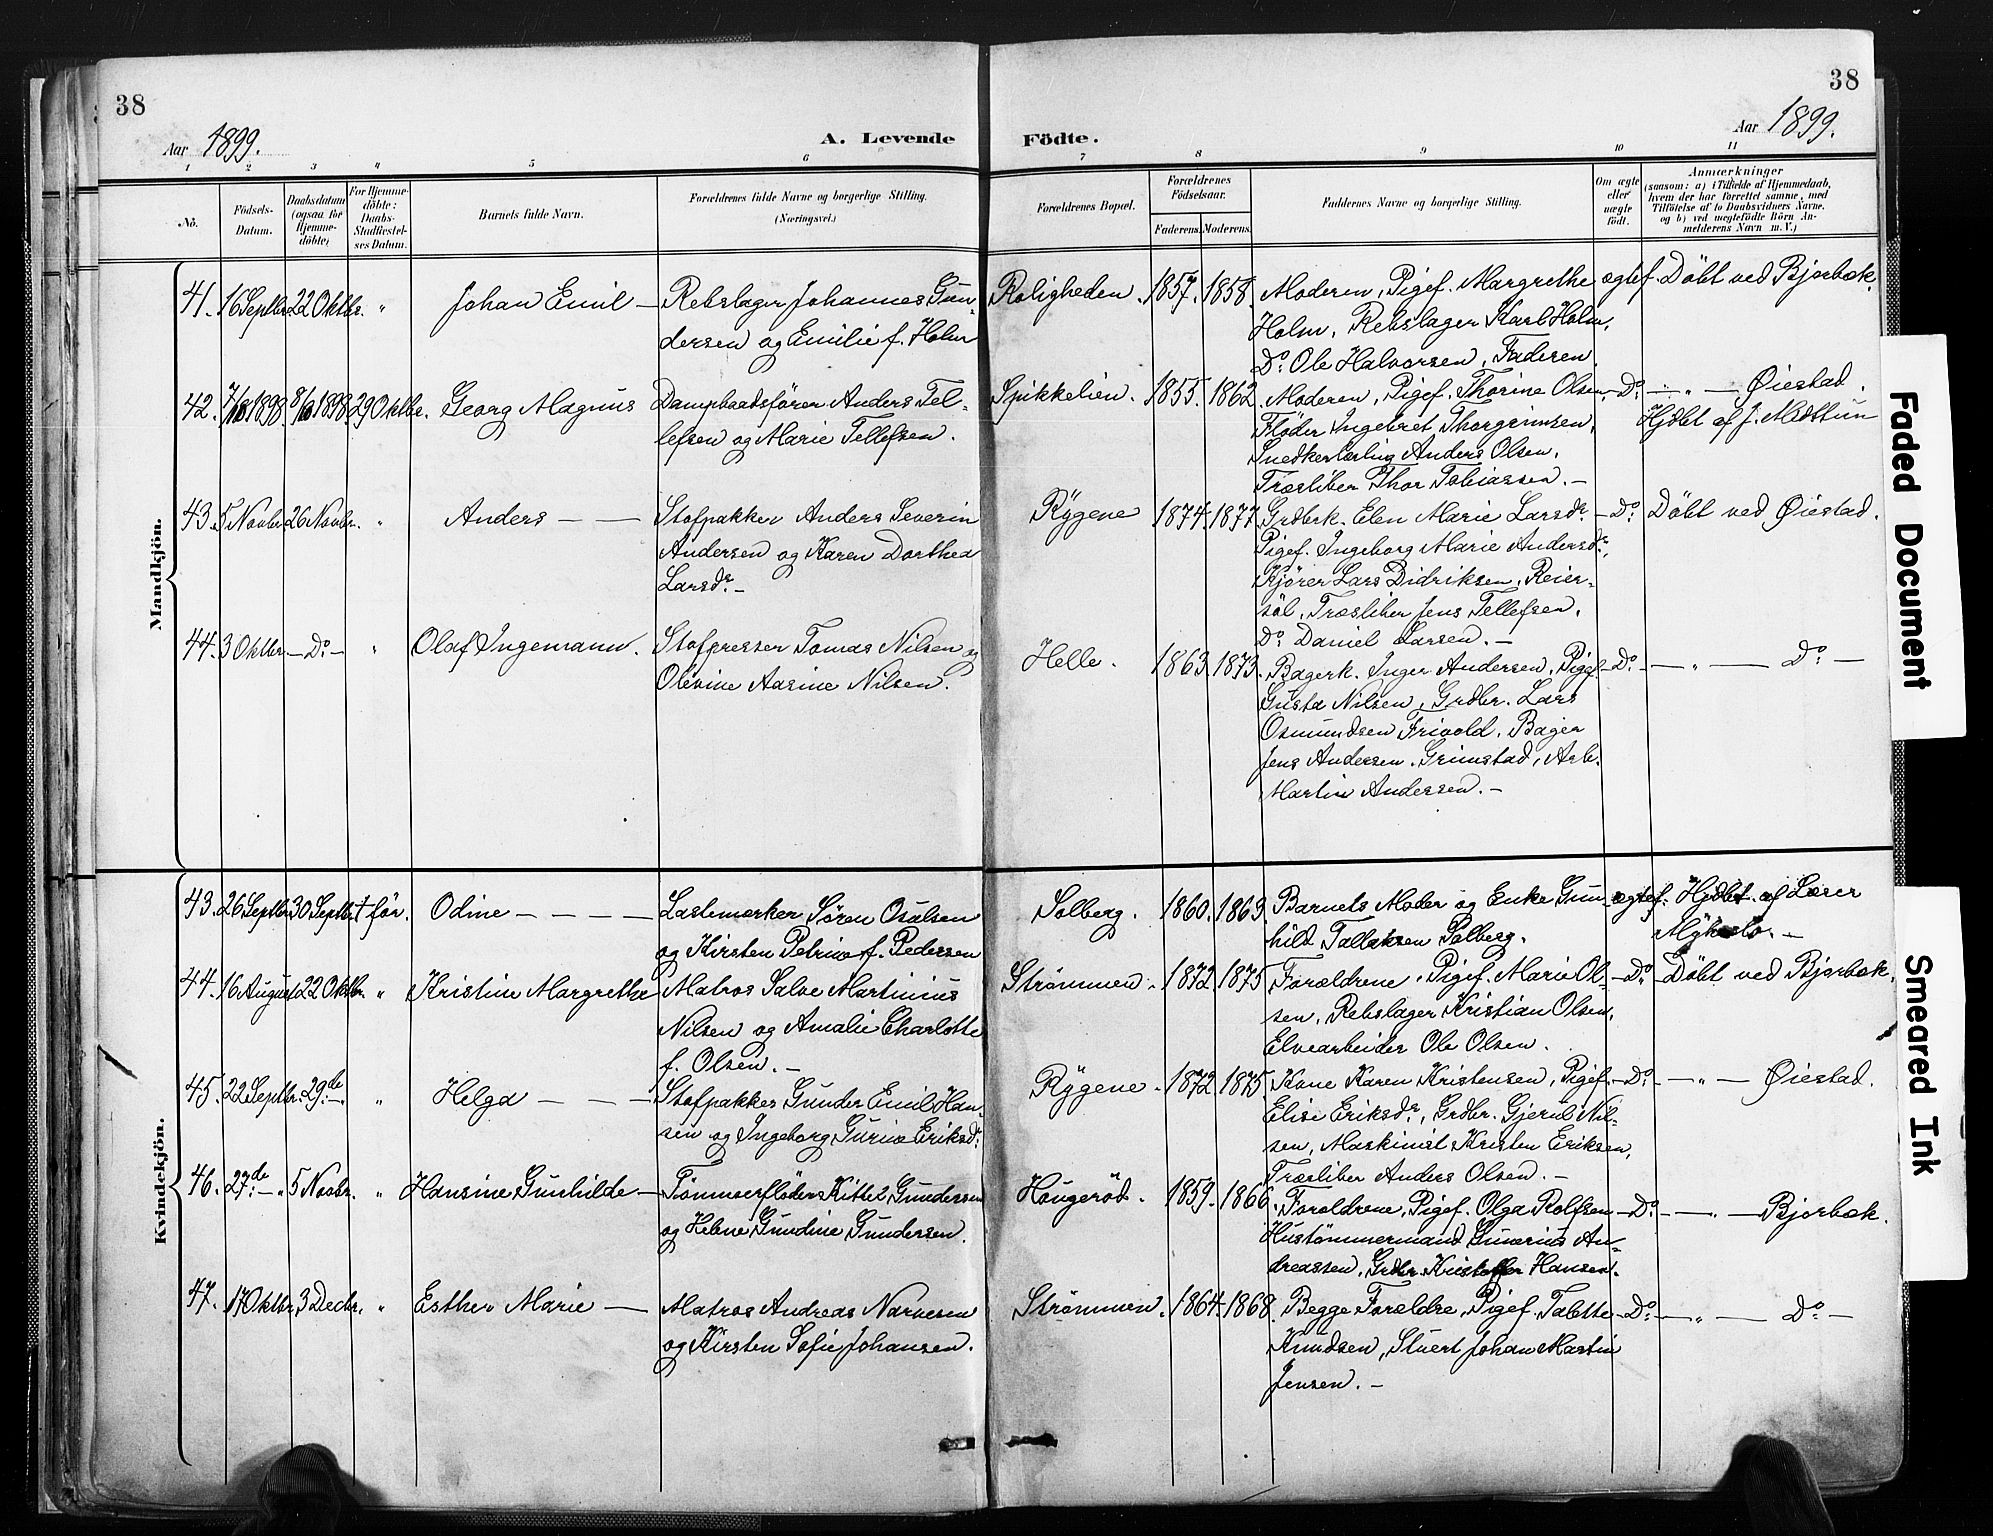 38
Aar 1899.
A. Levende
1 2 3 4 5 6
No.
Födsels-
Datum.
Daabsdatum
(ogsaa for
Hjemme-
döbte)
For Hjemme-
döbte:
Daabs-
Stadfæstel-
ses Datum.
Barnets fulde Navn.
Forældrenes fulde Navne og borgerlige Stilling.
(Næringsvei.)
Mandkjön.
41. 16 Septbr. 22 Oktbr. " Johan Emil — Rebslager Johannes Gun-
dersen og Emilie f. Holm
42. 7/10 1898. 8/10 1898. 29 Oktbr. Georg Magnus Dampbaadsfører Anders Tel-
lefsen og Marie Tellefsen.
43. 5 Novbr. 26 Novbr. " Anders — — Stofpakker Anders Severin
Andersen og Karen Dorthea
Larsdr. —
44. 3 Oktbr. — Do — " Olaf Ingemann. Stofpresser Tomas Nilsen og
Olevine Aasine Nilsen.
Kvindekjön.
43. 26 Septbr. 30 Septbr. † før. Odine — — — — Lastemerker Søren Osulsen
og Kirsten Petrine f. Pedersen
44. 16 August 22 Oktbr. " Kristine Margrethe Matros Salve Martinius
Nilsen og Amalie Charlotte
f. Olsen. —
45. 22 Septbr. 29de —. " Helga — — — Stofpakker Gunder Emil Han-
sen og Ingeborg Gurine Eriksdr.
46. 27de — " 5 Novbr. " Hansine Gunhilde — Tømmerfløder Kittel Gundersen
og Helene Gundine Gundersen.
47. 17 Oktbr. 3 Decbr. " Esther Marie — Matros Andreas Narvesen
og Kirsten Sofie Johansen.
38
Aar 1899.
Födte.
7 8 9 10 11
Forældrenes Bopæl.
Forældrenes
Födselsaar.
Faderens. Moderens.
Faddernes Navne og borgerlige Stilling.
Om ægte
eller
uægte
født.
Anmærkninger
(saasom: a) i Tilfælde af Hjemmedaab,
hvem der har forrettet samme, med
Tilföielse af to Daabsvidners Navne.
og b) ved uægtefödte Börn An-
melderens Navn m. V.)
Roligheden. 1857. 1858. Moderen, Pigef. Margrethe ægtef. Döbt ved Bjorbæk.
Holm, Rebslager Karl Holm,
Do Ole Halvorsen, Faderen.
Spikkelien. 1855. 1862. Moderen, Pigef. Thorine Olsen, — Do — " — Øiestad.
Fløder Ingebret Thorgrimsen, Hjdbt af J. Midttun
Snedkerlærling Anders Olsen.
Træsliber Thor Tobiassen. —
Rygene 1874. 1877. Grdbrk. Elen Marie Larsdr. — Do: Döbt ved Øiestad.
Pigef. Ingeborg Marie Andersdr.,
Kjører Lars Didriksen, Reier-
söl, Træsliber Jens Tellefsen.
Do Daniel Larsen. —
Helle. 1863. 1873. Bagerk. Inger Andersen, Pigef. — Do: — " — Do: —
Gusta Nilsen, Grdbr. Lars
Osmundsen Frivold, Bager
Jens Andersen. Grimstad, Arb.
Martin Andersen. —
Solberg. 1860. 1863. Barnets Moder og Enke Gun- ægtef. Hjdbt. af Lærer
hild Tallaksen Solberg.
Strømmen. 1872. 1875. Forældrene, Pigef. Marie Ol- — Do — Döbt ved Bjorbæk.
sen, Rebslager Kristian Olsen,
Elvearbeider Ole Olsen.
Rygene. 1872. 1875. Kone Karen Kristensen, Pigef. — Do: — " — Øiestad.
Elise Eriksdr., Grdbr. Gjerul Nil-
sen, Maskinist Kristen Eriksen,
Træsliber Anders Olsen. —
Hougeröd. 1859. 1866. Forældrene, Pigef. Olga Rolfsen — Do: — " — Bjorbæk.
Hustømmermand Gunerius An-
dreassen, Grdbr. Kristoffer Hansen.
Strømmen. 1864. 1868. Begge Forældre, Pigef. Tabette — Do: — " — Do: —
Knudsen, Stuert Johan Martin
Jensen. —
Faded Document
Smeared Ink